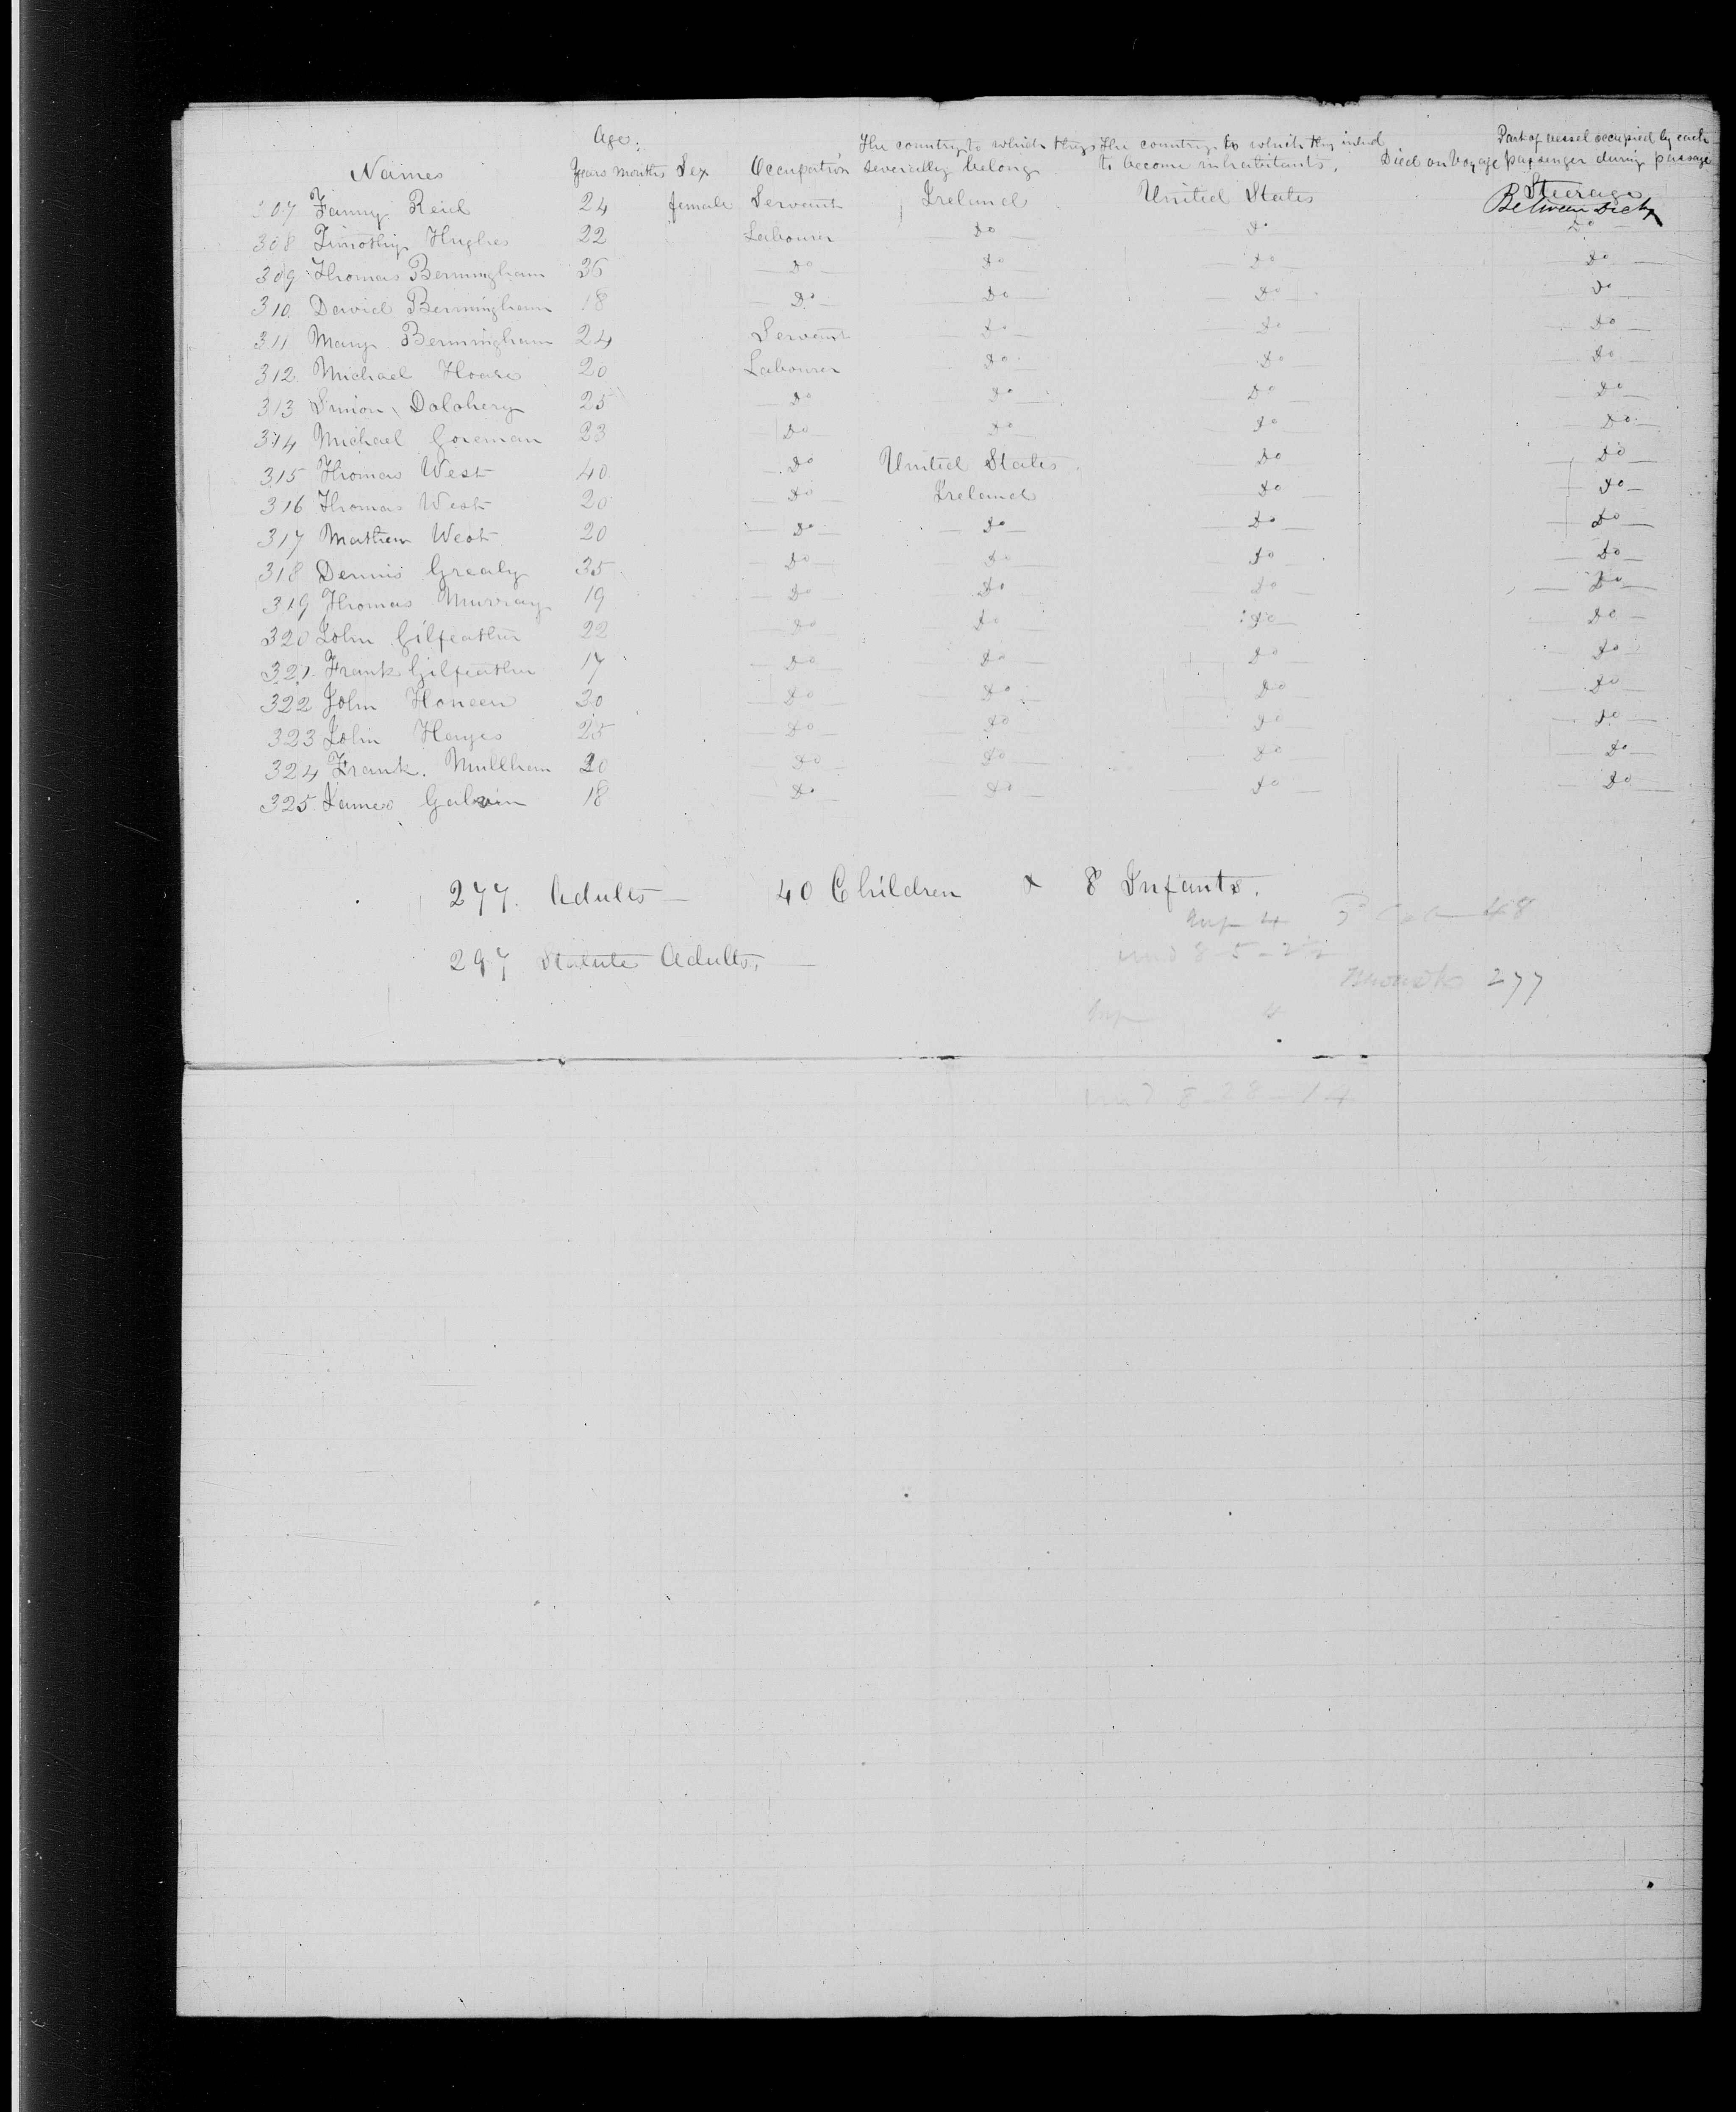 Age.
The country to which they The country to which they intend Part of vessel occupied by each
Names Years months Sex Occupation severally belong to become inhabitants. Died on Voyage passenger during passage
Steerage
307 Fanny Reid 24 female Servant Ireland United States Between Decks
308 Timothy Hughes 22 Labourer Do Do Do
309 Thomas Bermingham 36 Do Do Do Do
310 David Bermingham 18 Do Do Do Do
311 Mary Bermingham 24 Servant Do Do Do
312 Michael Hoare 20 Labourer Do Do Do
313 Simon Dolohery 25 Do Do Do Do
314 Michael Goreman 23 Do Do Do Do
315 Thomas West 40 Do United States Do Do
316 Thomas West 20 Do Ireland Do Do
317 Mathew West 20 Do Do Do Do
318 Dennis Grealy 35 Do Do Do Do
319 Thomas Murray 19 Do Do Do Do
320 John Gilfeather 22 Do Do Do Do
321 Frank Gilfeather 17 Do Do Do Do
322 John Honeen 30 Do Do Do Do
323 John Hayes 25 Do Do Do Do
324 Frank. Mullhern 20 Do Do Do Do
325 James Galvin 18 Do Do Do Do
277 Adults 40 Children & 8 Infants.
Inf 4 48
297 Statute Adults,
und 8 5
277
Inf
und 8 28 14